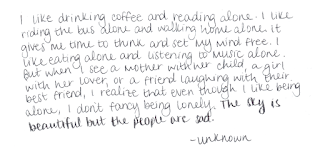 I like drinking coffee and reading alone. I like
riding the bus alone and walking home alone. It
gives me time to think and set my mind free. I
like eating alone and listening to music alone.
But when I see a mother with her child, a girl
with her lover, or a friend laughing with their
best friend, I realize that even though I like being
alone, I don't fancy being lonely. The sky is
beautiful but the people are sad.
-unknown